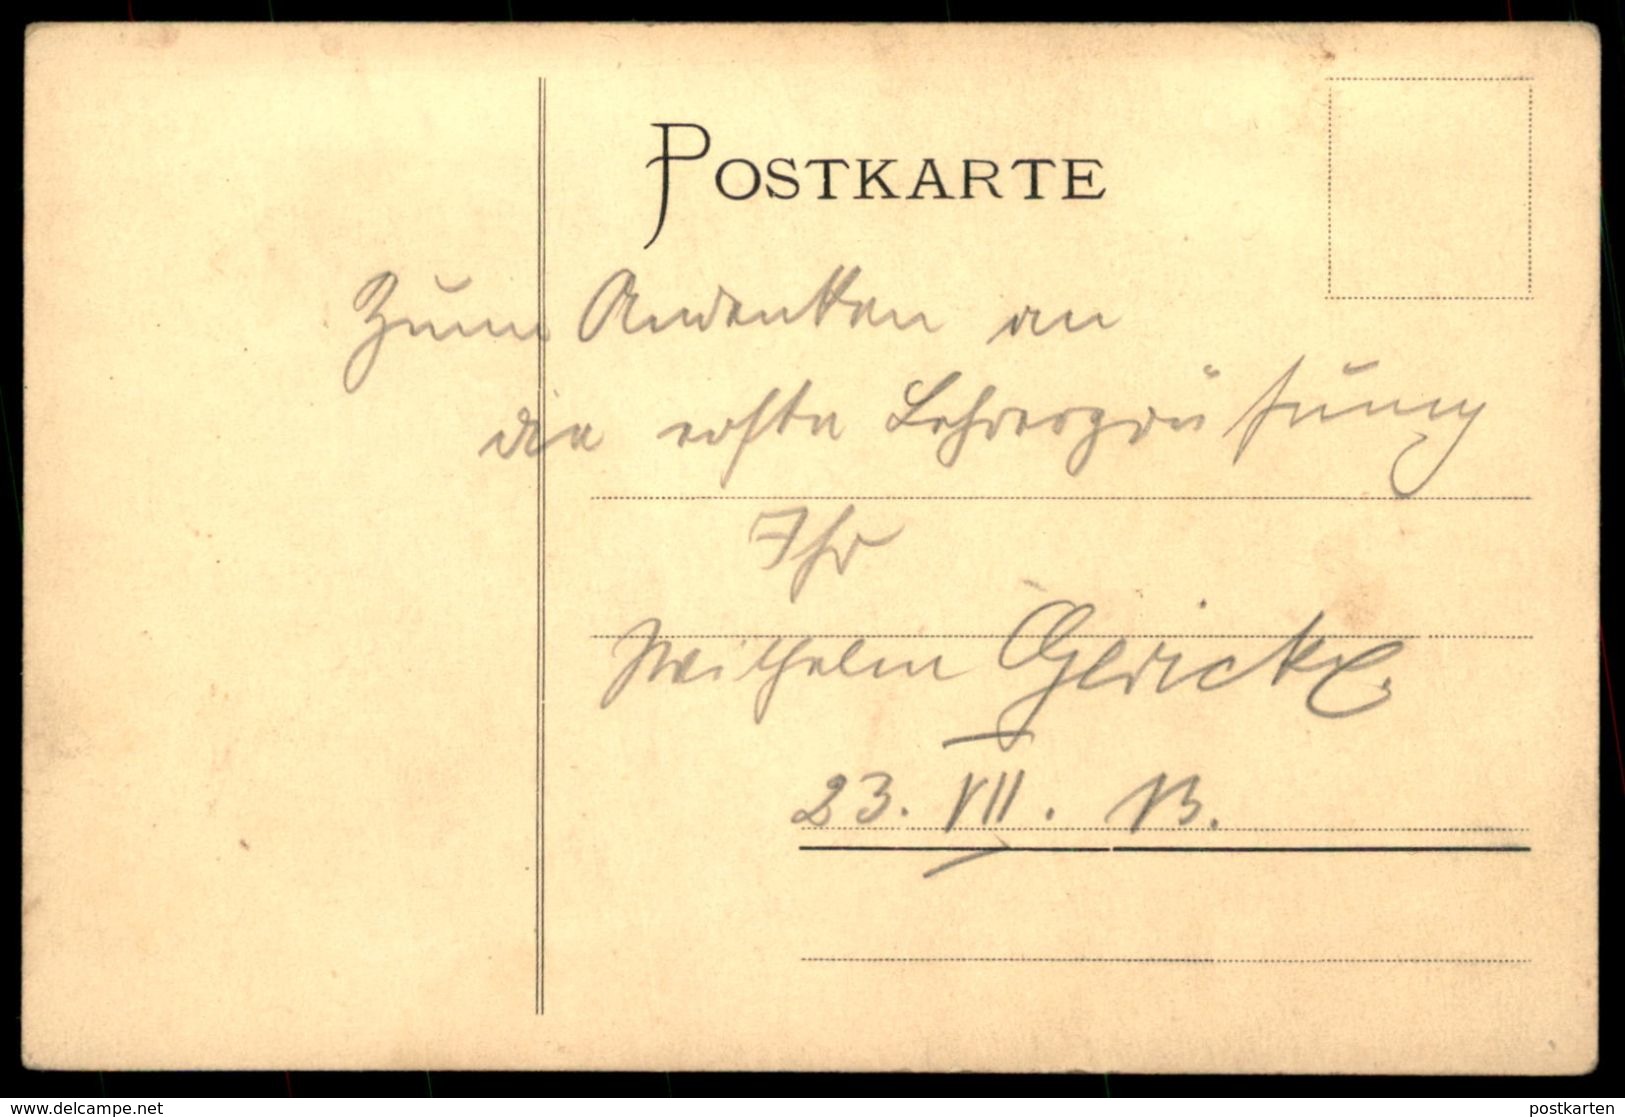 POSTKARTE
Zum Andenken an
die erste Lehrerprüfung
Ihr
Wilhelm Gericke.
23. VII. 13.
www.delcampe.net
postkarten